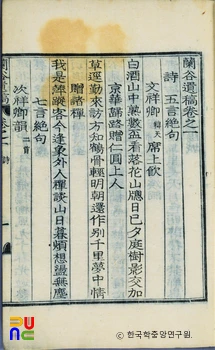 蘭谷遺稿卷之一
詩 五言絶句
文祥卿 稱天 席上飮
白酒山中熟數盃看落花山應日已夕庭樹影交加
京華講路贈仁圓上人
草逕勤來訪方知鶴骨輕明朝還作別千里夢中情
贈諸禪
我是 蹤客今逢象外人禪談山日暮頓想 無塵
七言絶句
次祥卿韻 二首
蘭谷遺稿 卷一 詩
PUNC
한국학중앙연구원